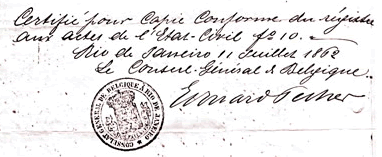 Certifié pour Copie Conforme du régistre
aux actes de l'Etat-Civil f210.
Rio de Janeiro 11 Juillet 1862
Le Consul-Général de Belgique.
Edouard Pecher
CONSULAT GÉNÉRAL DE BELGIQUE À RIO DE JANEIRO